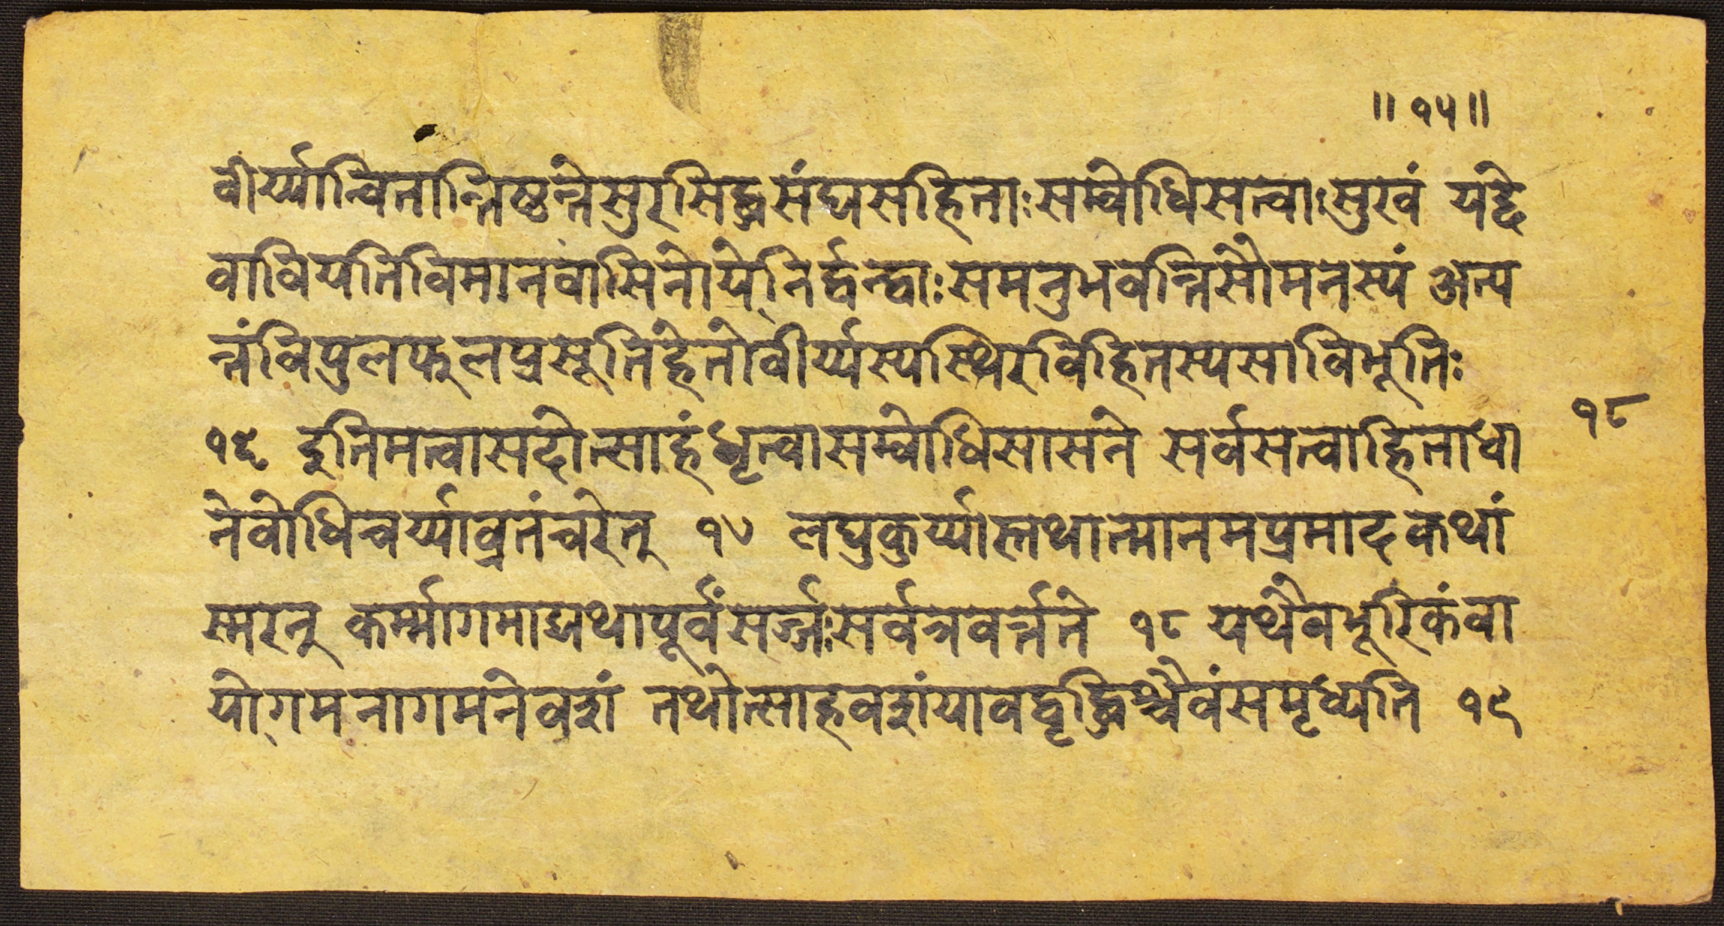 ॥ १५॥
वीर्य्यान्वितास्तिष्ठन्तेसुरसिद्धसंघसहिताः सम्बोधिसत्वाः सुखं यद्दे
वावियतिविमानवासिनोये निर्द्वन्द्वाः समनुभवन्तिसौमनस्यं अत्य
न्तंविपुलफलप्रसूतिहेतोवीर्य्यस्यस्थिरविहितस्यसाविभूतिः
१६ इतिमत्वासदोत्साहंधृत्वासम्बोधिसासने सर्वसत्वाहिताधा
नेबोधिचर्य्याव्रतंचरेत् १७ लघुकुर्य्यात्तथात्मानमप्रमादकथां
स्मरन् कर्म्मागमाद्यथापूर्वंसर्ज्जःसर्वत्रवर्त्तते १८ यथैवभूरिकंवा
योगमनागमनेवशं तथोत्साहवशंयावद्वृद्धिश्चैवंसमृध्यति १९
१८